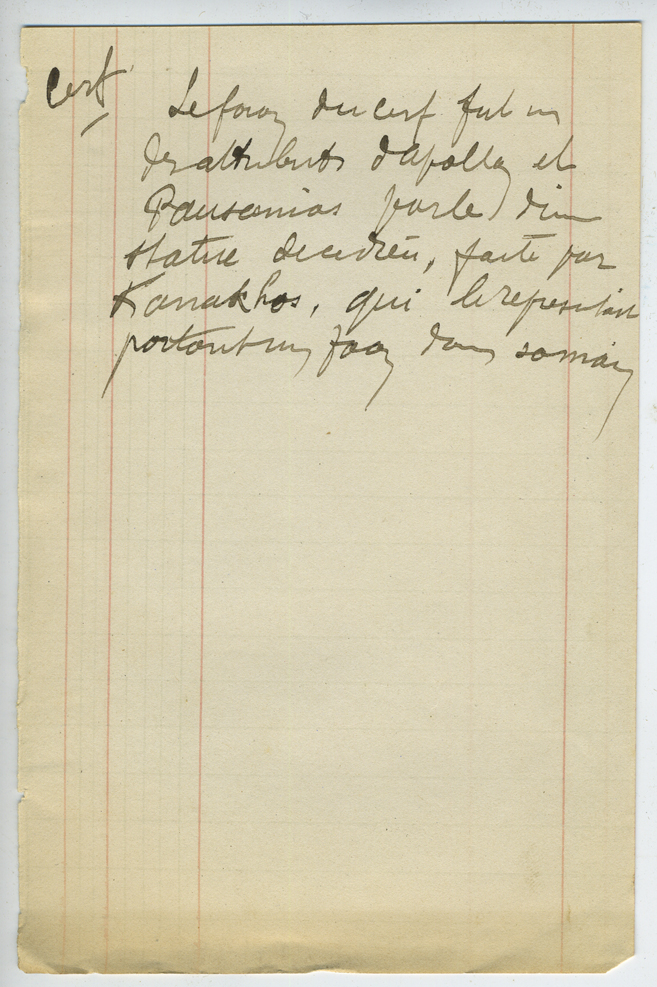 Cerf
Le faon du cerf fut un
des attributs d'Apollon et
Pausanias parle d'une
statue de ce dieu, faite par
Kanakhos, qui le représentait
portant un faon dans sa main